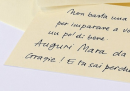 Non basta una
per imparare a v
un po' di bene
Auguri Mara da
Grazie! E tu cai perdu